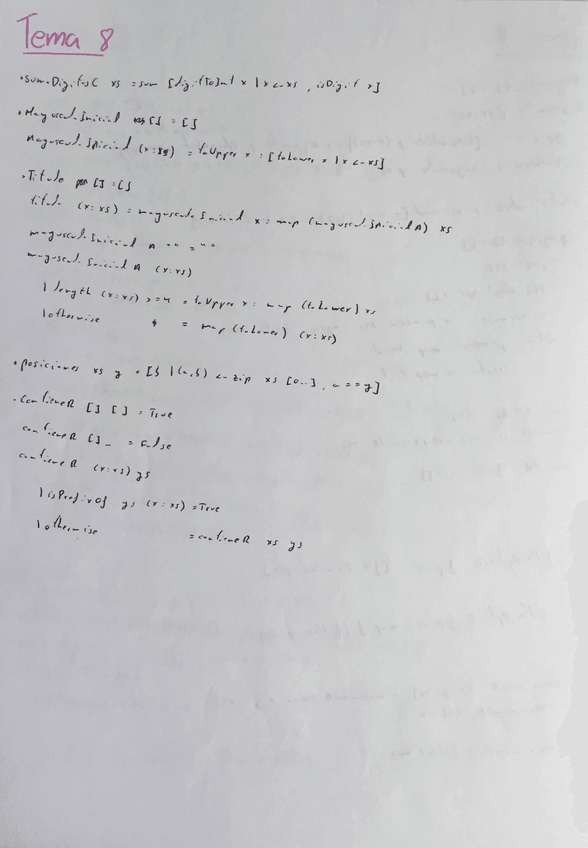 Tema 8
• sumaDigitosC xs = sum [digitToInt x | x <- xs, isDigit x]
• Mayuscula Inicial [] = []
Mayuscula Inicial (x:xs) = toUpper x : [toLower x | x <- xs]
• Titulo [] = []
titulo (x:xs) = mayuscula Inicial x : map (mayuscula Inicial A) xs
mayuscula Inicial A "" = ""
mayuscula Inicial A (x:xs)
| length (x:xs) >= 4 = toUpper x : map (toLower) xs
| otherwise = map (toLower) (x:xs)
• posiciones xs y = [b | (a,b) <- zip xs [0..], a == y]
• contieneR [] [] = True
contieneR [] _ = False
contieneR (x:xs) ys
| isPrefixOf ys (x:xs) = True
| otherwise = contieneR xs ys